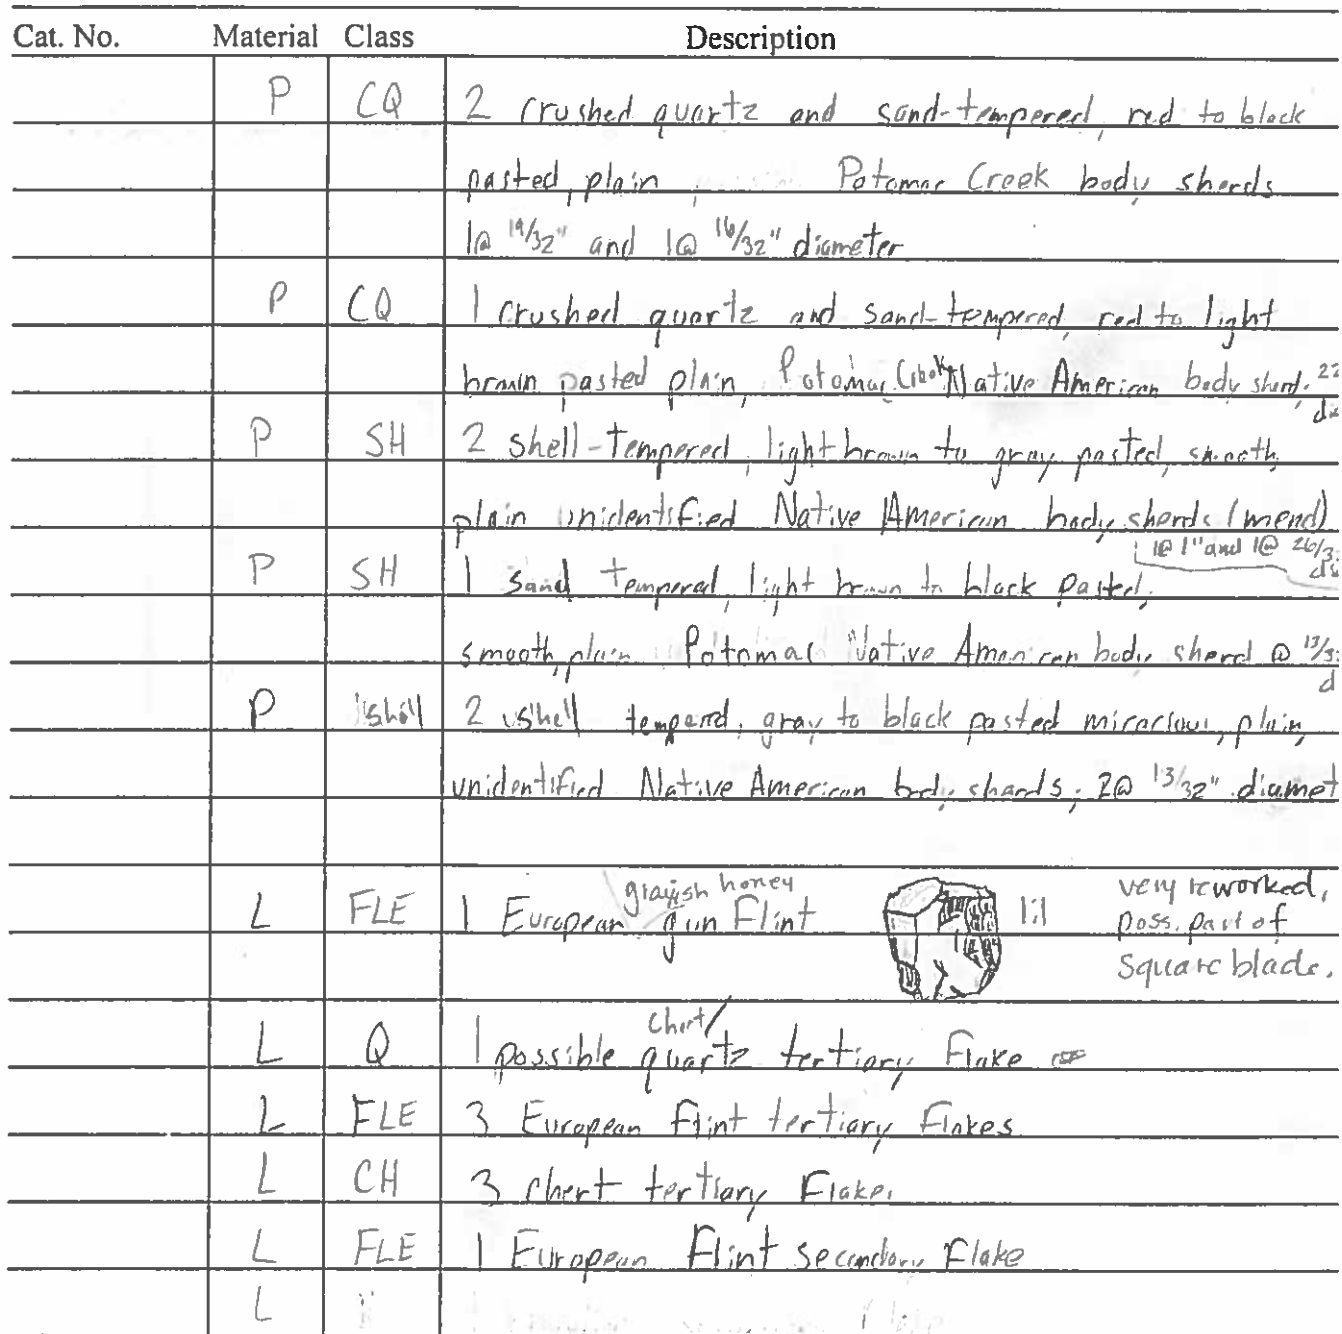 Cat. No. Material Class Description
P CQ 2 crushed quartz and sand-tempered, red to black
pasted, plain Potomac Creek body sherds
1@ 19/32" and 1@ 16/32" diameter
P CQ 1 crushed quartz and sand-tempered, red to light
brown pasted plain, Potomac Creek Native American body sherd, 22
P SH 2 shell-tempered, light brown to gray pasted, smooth,
plain unidentified Native American body sherds (mend)
1@ 1" and 1@ 26/3
P SH 1 sand tempered, light brown to black pasted,
smooth, plain Potomac Native American body sherd @ 13/3
d
P shell 2 shell tempered, gray to black pasted micacious, plain,
unidentified Native American body shards; 2@ 13/32" diamet
grayish honey
L FLE 1 European gun Flint 1:1 very reworked,
poss. part of
square blade.
chert/
L Q 1 possible quartz tertiary Flake
L FLE 3 European flint tertiary Flakes
L CH 3 chert tertiary Flakes
L FLE 1 European Flint secondary Flake
L